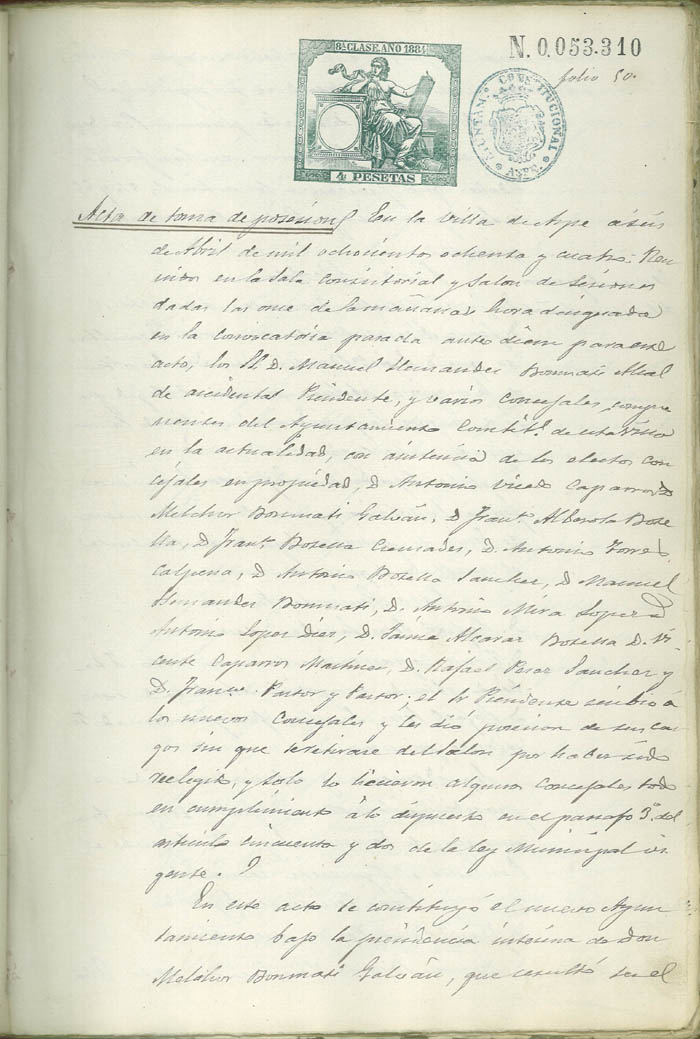 8ª CLASE. AÑO 1884
4 PESETAS
N. 0.053.310
folio 50.
AYUNTAM.º CONSTITUCIONAL
ASPE.
Acta de toma de posesion En la Villa de Aspe a seis
de Abril de mil ochocientos ochenta y cuatro: Reu
nidos en la Sala Consistorial y Salon de Sesiones
dadas las once de la mañana hora designada
en la convocatoria pasada ante diem para este
acto, los SS. D. Manuel Hernandez Bonmati Alcal
de accidental Presidente, y varios concejales compo
nentes del Ayuntamiento Constitl. de esta Villa
en la actualidad, con asistencia de los electos con
cejales en propiedad, D. Antonio Vicedo Caparros D
Melchor Bonmati Galván, D Franco. Alberola Bote
lla, D Franco. Botella Cremades, D. Antonio Torres
Calpena, D Antonio Botella Sanchez, D Manuel
Hernandez Bonmati, D. Antonio Mira Lopez D
Antonio Lopez Diez, D. Jaime Alcaraz Botella D. Vi
cente Caparros Martinez, D. Rafael Perez Sanchez y
D. Franco. Pastor y Pastor; el Sr Presidente recibió a
los nuevos Concejales y les dió posesion de sus car
gos sin que se retirase del Salon por haber sido
reelegido, y solo lo hicieron algunos concejales todo
en cumplimiento á lo dispuesto en el parrafo 3º. del
articulo cincuenta y dos de la ley Municipal vi
gente.
En este acto se constituyó el nuevo Ayun
tamiento bajo la presidencia interina de Don
Melchor Bonmati Galván, que resultó ser el